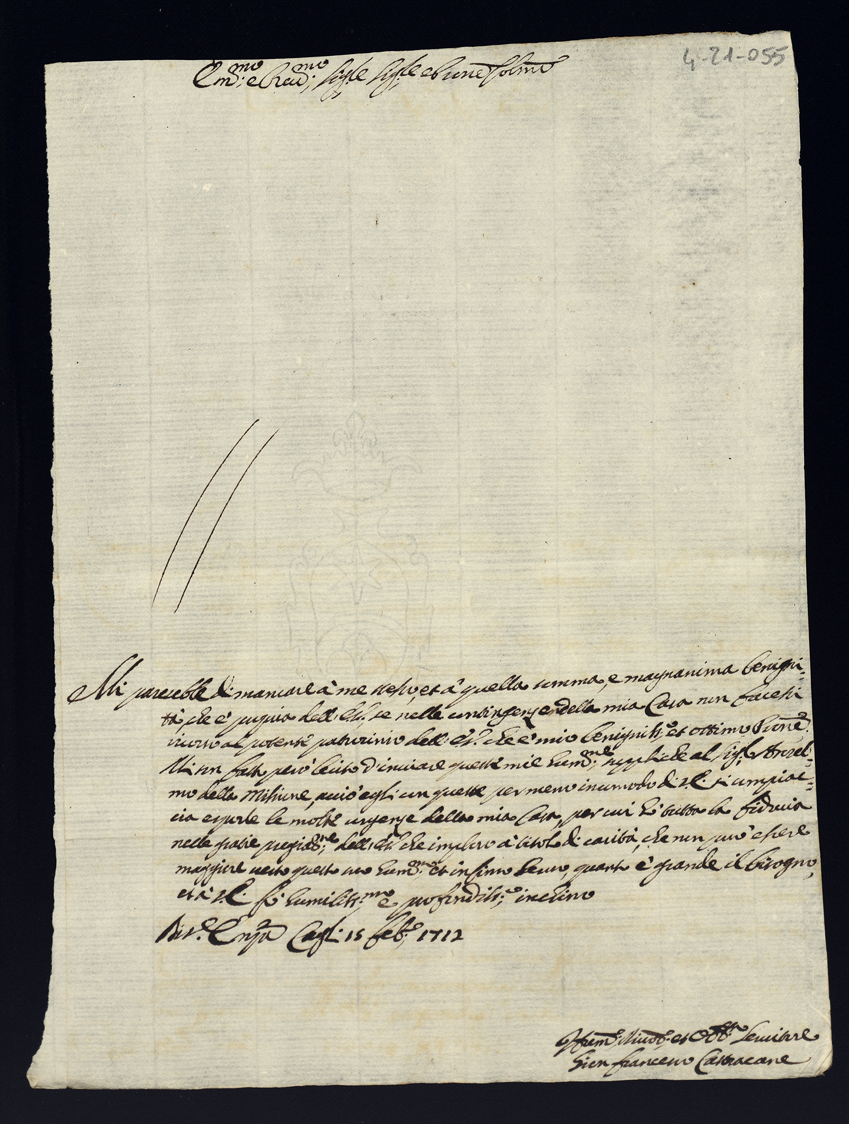 4-21-055
Em.mo e Rev.mo Sig.re Sig.re e Prone Colmo
Mi parerebbe di mancare à me stesso, et à quella somma, e magnanima benigni-
tà, che è propria dell'E.V. se nelle contingenze della mia Casa non facessi
ricorso al potente patrocinio dell'E.V. che è mio benigniss.o et ottimo Prone.
Mi son fatto però lecito d'inviare queste mie hum.me suppliche al Sig.r Ansel-
mo della Missione, acciò egli con queste per meno incomodo di V.E. si compiac-
cia esporle le molte urgenze della mia Casa, per cui hò tutta la fiducia
nelle grazie pregia.me dell'E.V. che imploro à titolo di carità, che non può essere
maggiore verso questo suo hum.mo et infimo servo, quanto è grande il bisogno,
et à V.E. fò humiliss.mo e profondiss.o inchino
Di V.E. Cagli 15 Feb.o 1712
Hum.o Divot.o et Obb.o Servitore
Gion Francesco Castracane